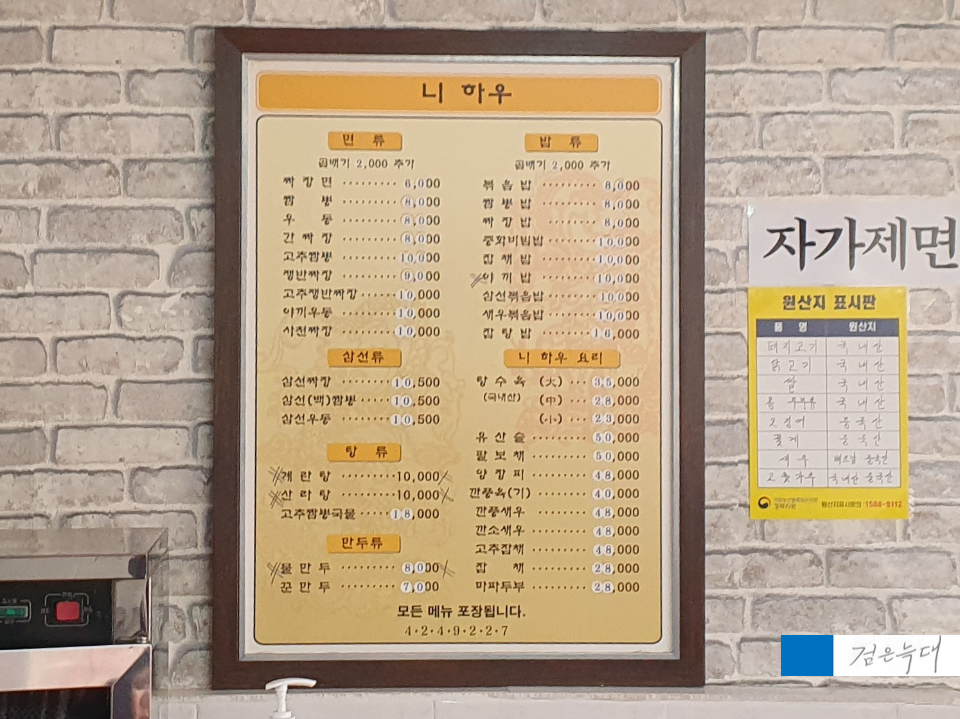 니 하우
면 류
곱배기 2,000 추가
짜 장 면 ········· 6,000
짬 뽕 ········· 8,000
우 동 ········· 8,000
간 짜 장 ········· 8,000
고추짬뽕 ········· 10,000
쟁반짜장 ········· 9,000
고추쟁반짜장 ······ 10,000
야끼우동 ········· 10,000
사천짜장 ········· 10,000
삼선류
삼선짜장 ········ 10,500
삼선(백)짬뽕 ····· 10,500
삼선우동 ········ 10,500
탕 류
계 란 탕 ········· 10,000
산 라 탕 ········· 10,000
고추짬뽕국물 ····· 18,000
만두류
물 만 두 ········· 8,000
군 만 두 ········· 7,000
밥 류
곱배기 2,000 추가
볶 음 밥 ········ 8,000
짬 뽕 밥 ········ 8,000
짜 장 밥 ········ 8,000
중화비빔밥 ······ 10,000
잡 채 밥 ········ 10,000
야 끼 밥 ········ 10,000
삼선볶음밥 ······ 10,000
새우볶음밥 ······ 10,000
잡 탕 밥 ········ 16,000
니 하우 요리
탕 수 육 (大) ··· 35,000
(국내산) (中) ··· 28,000
(小) ··· 23,000
유 산 슬 ········ 50,000
팔 보 채 ········ 50,000
양 장 피 ········ 48,000
깐풍육(기) ······ 40,000
깐풍새우 ········ 48,000
깐소새우 ········ 48,000
고추잡채 ········ 48,000
잡 채 ········ 28,000
마파두부 ········ 28,000
모든 메뉴 포장됩니다.
4·2·4·9·2·2·7
자가제면
원산지 표시판
품 명 원산지
돼지고기 국내산
닭고기 국내산
쌀 국내산
콩 두부류 국내산
오징어 중국산
꽃게 중국산
새우 베트남 중국산
고춧가루 국내산 중국산
원산지표시문의 1588-8112
검은늑대